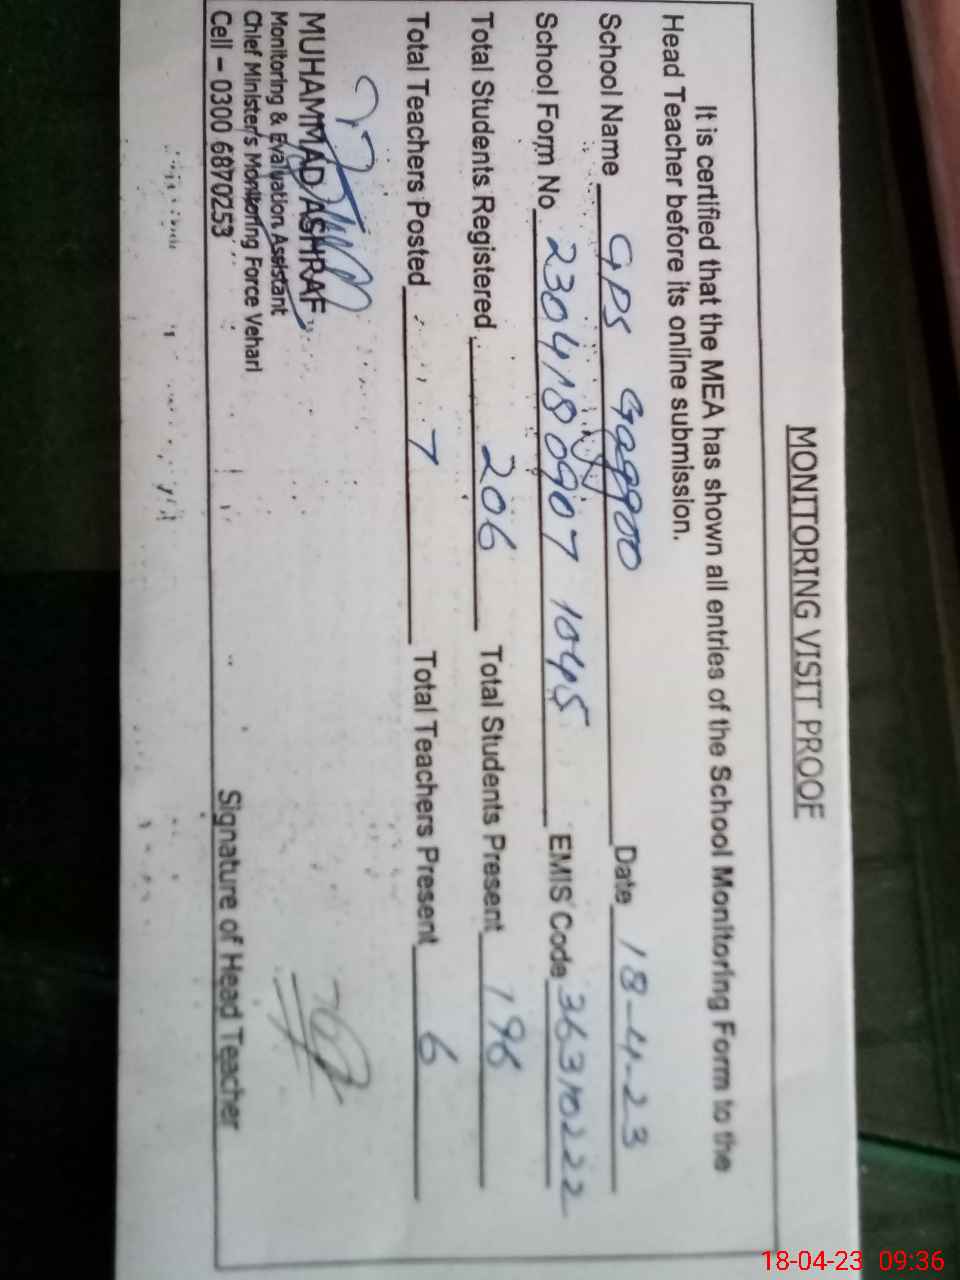 MONITORING VISIT PROOF
It is certified that the MEA has shown all entries of the School Monitoring Form to the
Head Teacher before its online submission.
School Name GPS Gaggoo Date 18-4-23
School Form No 2304180907 1045 EMIS Code 36310222
Total Students Registered 206 Total Students Present 196
Total Teachers Posted 7 Total Teachers Present 6
MUHAMMAD ASHRAF
Monitoring & Evaluation Assistant
Chief Minister's Monitoring Force Vehari
Cell – 0300 6870253 Signature of Head Teacher
18-04-23 09:36